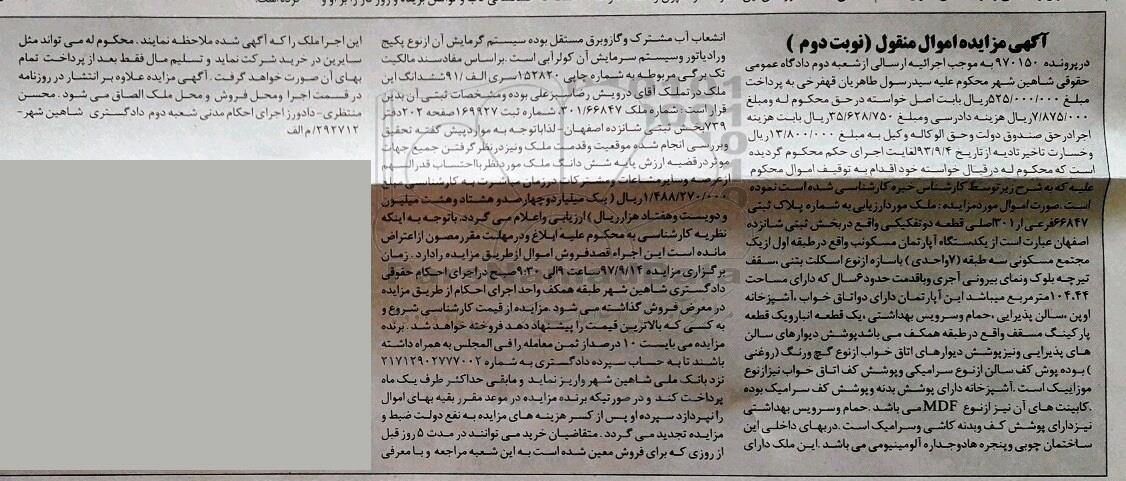 آگهی مزایده اموال منقول (نوبت دوم )
درپرونده ۹۷۰۱۵۰ به موجب اجرائیه ارسالی ازشعبه دوم دادگاه عمومی
حقوقی شاهین شهر محکوم علیه سیدرسول طاهریان قهفرخی به پرداخت
مبلغ ۵۲۵/۰۰۰/۰۰۰ریال بابت اصل خواسته درحق محکوم له ومبلغ
۷/۸۷۵/۰۰۰ریال هزینه دادرسی ومبلغ ۳۵/۶۲۸/۷۵۰ریال بابت هزینه
اجرادرحق صندوق دولت وحق الوکاله وکیل به مبلغ ۱۳/۸۰۰/۰۰۰ریال
وخسارت تاخیرتادیه ازتاریخ ۹۳/۹/۴لغایت اجرای حکم محکوم گردیده
است که محکوم له درقبال خواسته خوداقدام به توقیف اموال محکوم
علیه که به شرح زیرتوسط کارشناس خبره کارشناسی شده است نموده
است .صورت اموال موردمزایده : ملک موردارزیابی به شماره پلاک ثبتی
۶۶۸۴۷فرعی از۳۰۱اصلی قطعه دوتفکیکی واقع دربخش ثبتی شانزده
اصفهان عبارت است ازیکدستگاه آپارتمان مسکونی واقع درطبقه اول ازیک
مجتمع مسکونی سه طبقه (۷واحدی ) باسازه ازنوع اسکلت بتنی ،سقف
تیرچه بلوک ونمای بیرونی آجری وباقدمت حدود۶سال که دارای مساحت
۱۰۴.۴۴مترمربع میباشد این آپارتمان دارای دواتاق خواب ،آشپزخانه
اوپن ،سالن پذیرایی ،حمام وسرویس بهداشتی ،یک قطعه انبارویک قطعه
پارکینگ مسقف واقع درطبقه همکف می باشدپوشش دیوارهای سالن
های پذیرایی ونیزپوشش دیوارهای اتاق خواب ازنوع گچ ورنگ (روغنی
) بوده پوش کف سالن ازنوع سرامیکی وپوشش کف اتاق خواب نیزازنوع
موزاییک است .آشپزخانه دارای پوشش بدنه وپوشش کف سرامیک بوده
.کابینت های آن نیز ازنوع MDF می باشد .حمام وسرویس بهداشتی
نیزدارای پوشش کف وبدنه کاشی وسرامیک است .دربهای داخلی این
ساختمان چوبی وپنجره هادوجداره آلومینیومی می باشد .این ملک دارای
انشعاب آب مشترک وگازوبرق مستقل بوده سیستم گرمایش آن ازنوع پکیج
ورادیاتور وسیستم سرمایش آن کولرآبی است .براساس مفادسند مالکیت
تک برگی مربوطه به شماره چاپی ۱۵۲۸۲۰سری الف /۹۱ششدانگ این
ملک درتملک آقای درویش رضا علی بوده ومشخصات ثبتی آن بدین
قراراست :شماره ملک ۳۰۱/۶۶۸۴۷ شماره ثبت ۱۶۹۹۲۷صفحه ۲۰۲دفتر
۷۳۹بخش ثبتی شانزده اصفهان -لذاباتوجه به مواردپیش گفته تحقیق
وبررسی انجام شده موقعیت وقدمت ملک ونیزدرنظرگرفتن جمیع جهات
موثردرقضیه ارزش پایه شش دانگ ملک موردنظربااحتساب قدرالسهم
ازعرصه وسایرمشاعات ومشترکات درزمان مباشرت به کارشناسی مبلغ
۱/۴۸۸/۲۷۰/۰۰۰ریال ( یک میلیاردوچهارصدو هشتاد وهشت میلیون
و دویست وهفتاد هزارریال ) ارزیابی واعلام می گردد.باتوجه به اینکه
نظریه کارشناسی به محکوم علیه ابلاغ ودرمهلت مقررمصون ازاعتراض
مانده است این اجراء قصدفروش اموال ازطریق مزایده رادارد . زمان
برگزاری مزایده ۹۷/۹/۱۴ساعت ۹الی ۹:۳۰صبح دراجرای احکام حقوقی
دادگستری شاهین شهر طبقه همکف واحد اجرای احکام از طریق مزایده
در معرض فروش گذاشته می شود .مزایده از قیمت کارشناسی شروع و
به کسی که بالاترین قیمت را پیشنهاد دهد فروخته خواهد شد . برنده
مزایده می بایست ۱۰ درصد از ثمن معامله را فی المجلس به همراه داشته
باشند تا به حساب سپرده دادگستری به شماره ۲۱۷۱۲۹۰۲۷۷۷۰۰۲
نزد بانک ملی شاهین شهر واریز نماید و مابقی حداکثر ظرف یک ماه
پرداخت کند و در صورتیکه برنده مزایده در موعد مقرر بقیه بهای اموال
را نپردازد سپرده او پس از کسر هزینه های مزایده به نفع دولت ضبط و
مزایده تجدید می گردد . متقاضیان خرید می توانند در مدت ۵ روز قبل
از روزی که برای فروش معین شده است به این شعبه مراجعه و با معرفی
این اجرا ملک را که آگهی شده ملاحظه نمایند . محکوم له می تواند مثل
سایرین در خرید شرکت نماید و تسلیم مال فقط بعد از پرداخت تمام
بهای آن صورت خواهد گرفت . آگهی مزایده علاوه بر انتشار در روزنامه
در قسمت اجرا ومحل فروش و محل ملک الصاق می شود . محسن
منتظری-دادورز اجرای احکام مدنی شعبه دوم دادگستری شاهین شهر-
۲۹۲۷۱۲/م الف